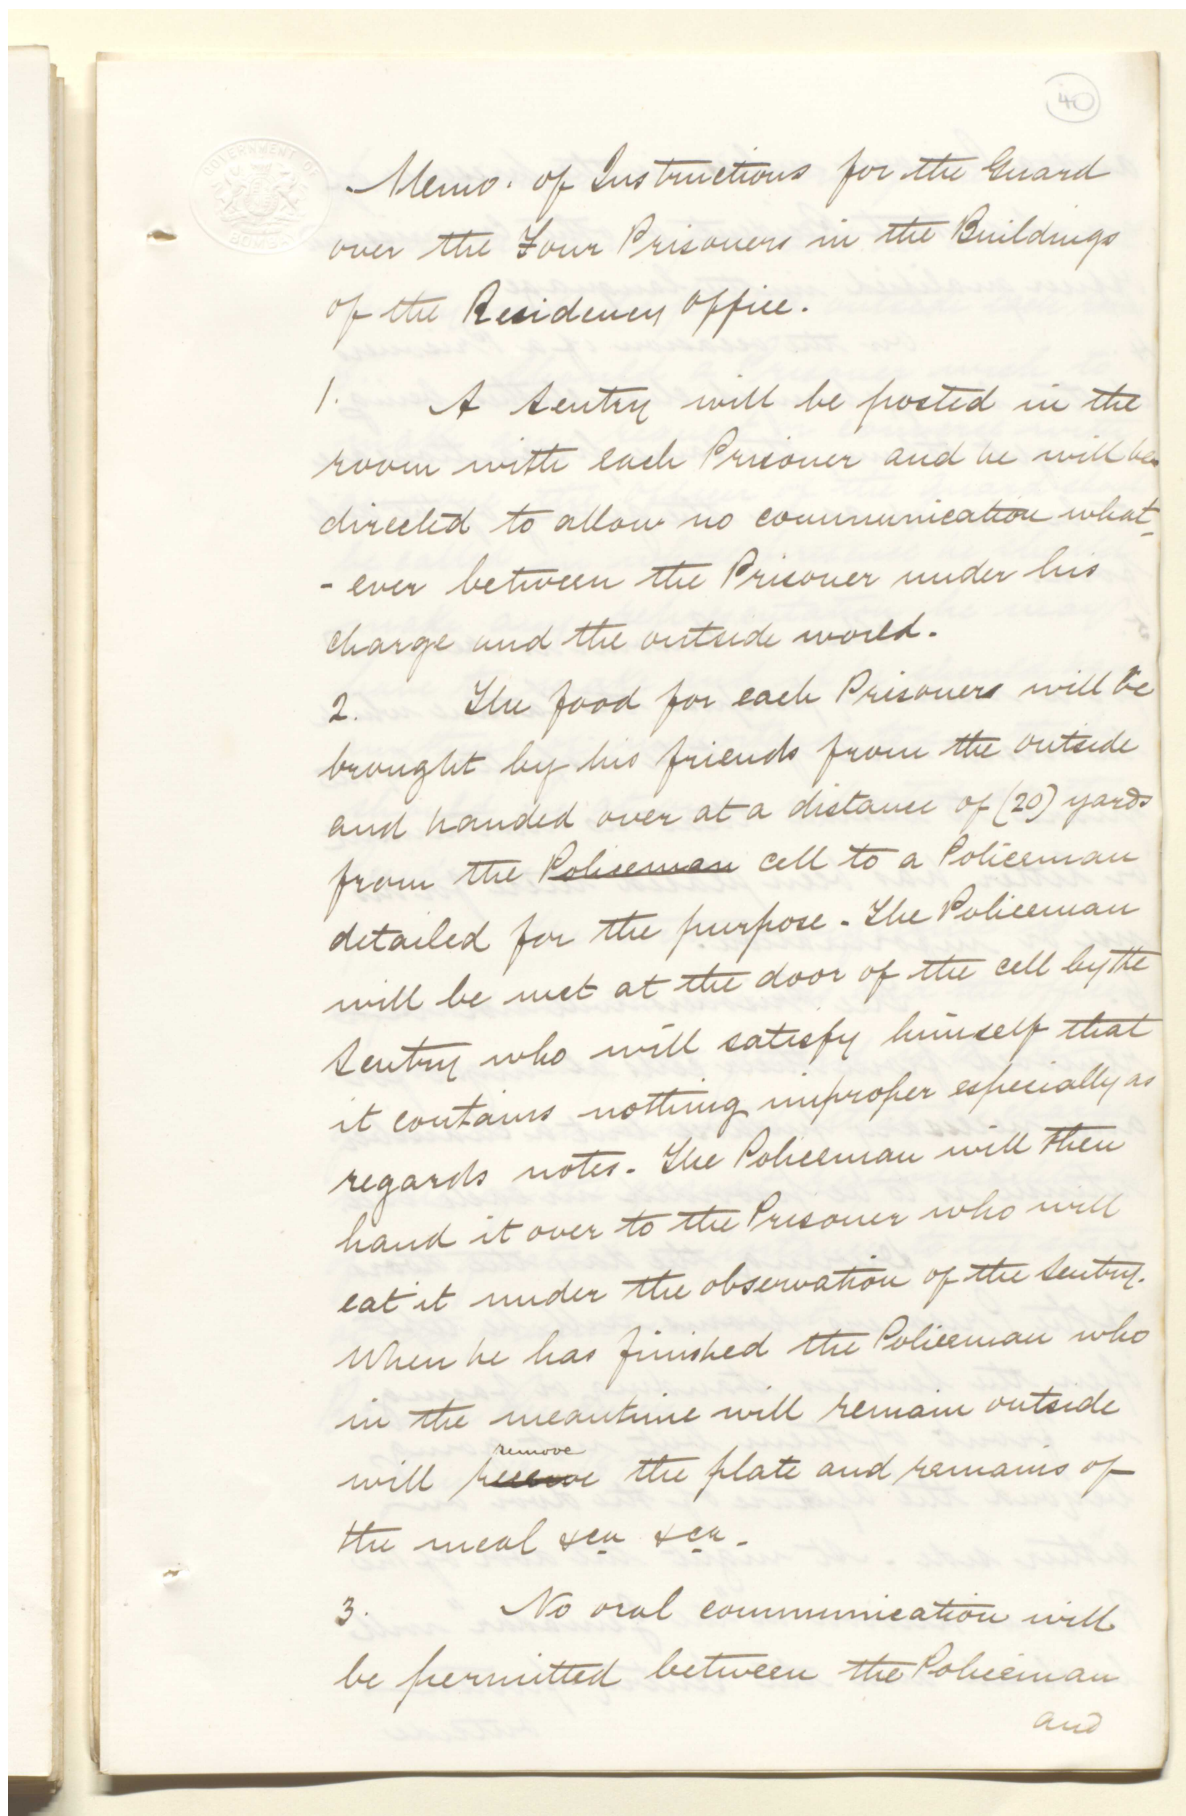 40
GOVERNMENT OF
BOMBAY
Memo. of Instructions for the Guard
over the Four Prisoners in the Buildings
of the Residency Office.
1. A Sentry will be posted in the
room with each Prisoner and he will be
directed to allow no communication what-
-ever between the Prisoner under his
charge and the outside world.
2. The food for each Prisoners will be
brought by his friends from the outside
and handed over at a distance of (20) yards
from the Policeman cell to a Policeman
detailed for the purpose. The Policeman
will be met at the door of the cell by the
Sentry who will satisfy himself that
it contains nothing improper especially as
regards notes. The Policeman will then
hand it over to the Prisoner who will
eat it under the observation of the Sentry.
When he has finished the Policeman who
in the meantime will remain outside
remove
will reserve the plate and remains of
the meal &ca &ca.
3. No oral communication will
be permitted between the Policeman
and